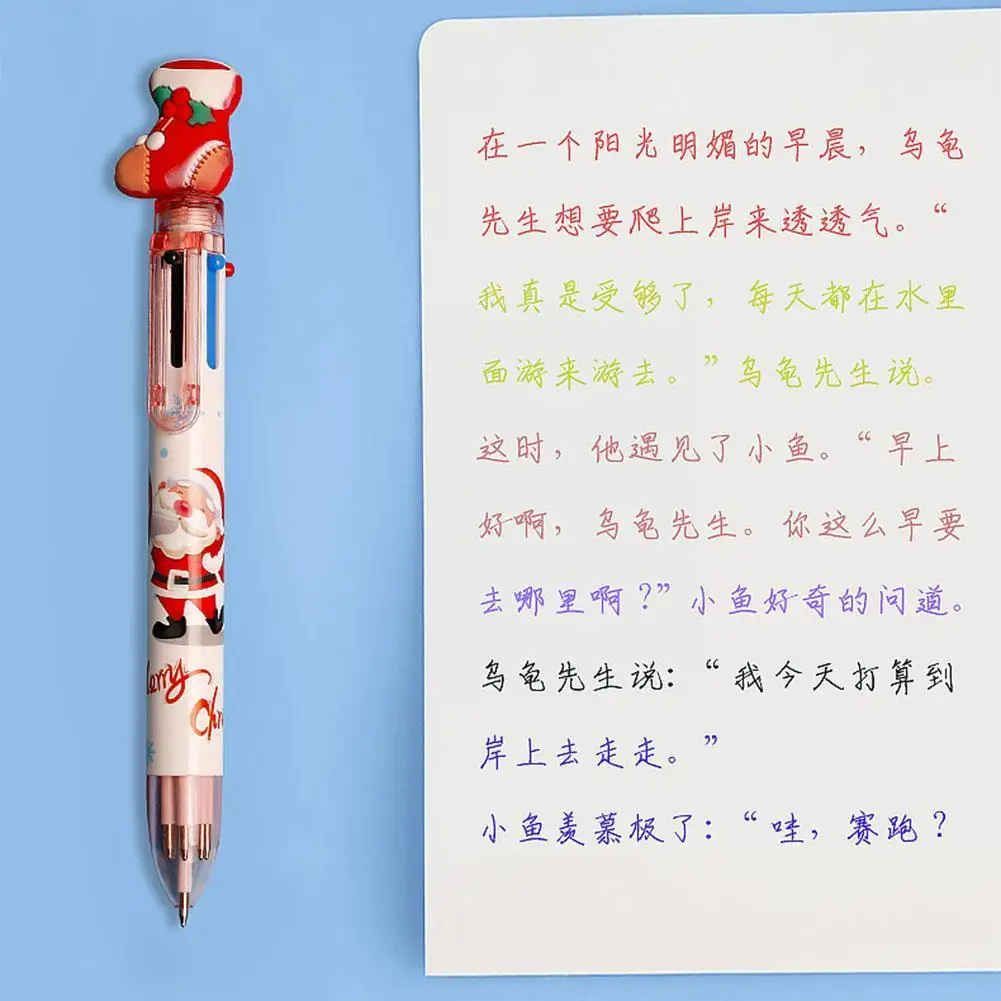 在一个阳光明媚的早晨，乌龟
先生想要爬上岸来透透气。“
我真是受够了，每天都在水里
面游来游去。”乌龟先生说。
这时，他遇见了小鱼。“早上
好啊，乌龟先生。你这么早要
去哪里啊？”小鱼好奇的问道。
乌龟先生说：“我今天打算到
岸上去走走。”
小鱼羡慕极了：“哇，赛跑？